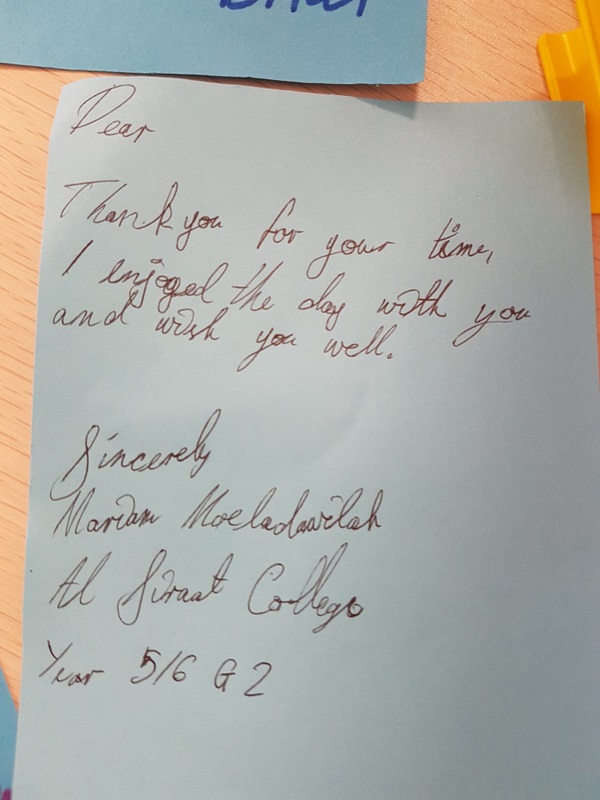 Dear
Thank you for your time,
I enjoyed the day with you
and wish you well.
Sincerely
Mariam Moeladawilah
Al Siraat College
Year 5/6 G2